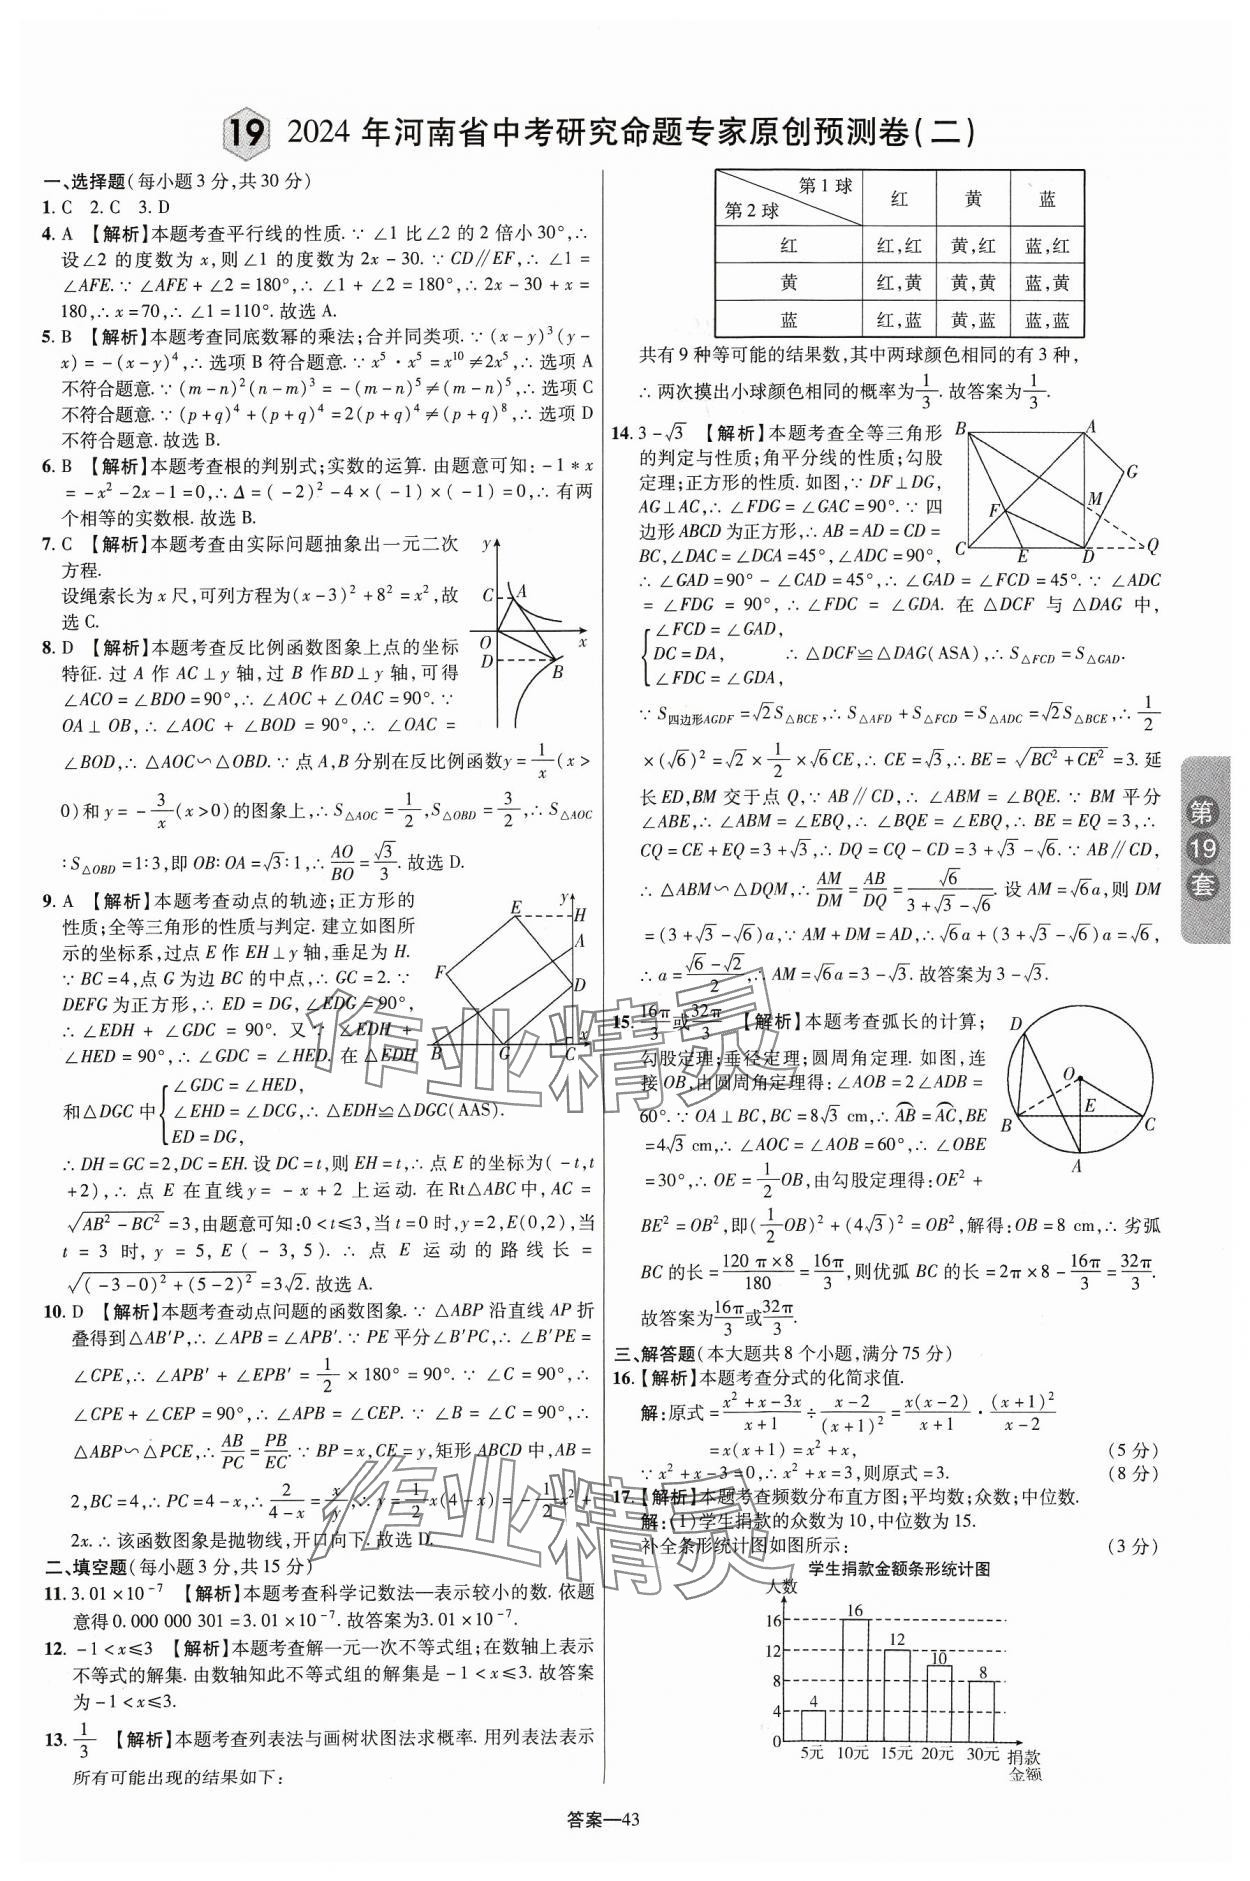 19 2024 年河南省中考研究命题专家原创预测卷(二)
一、选择题(每小题3分,共30分)
1. C 2. C 3. D
4. A 【解析】本题考查平行线的性质. ∵ ∠1 比∠2 的 2 倍小30°, ∴
设∠2 的度数为 x,则∠1 的度数为 2x－30. ∵ CD∥EF, ∴ ∠1 =
∠AFE. ∵ ∠AFE + ∠2 = 180°, ∴ ∠1 + ∠2 = 180°, ∴ 2x－30 + x =
180, ∴ x = 70, ∴ ∠1 = 110°. 故选 A.
5. B 【解析】本题考查同底数幂的乘法;合并同类项. ∵ (x－y)³(y－
x) = －(x－y)⁴, ∴ 选项 B 符合题意. ∵ x⁵·x⁵ = x¹⁰ ≠ 2x⁵, ∴ 选项 A
不符合题意. ∵ (m－n)²(n－m)³ = －(m－n)⁵ ≠ (m－n)⁵, ∴ 选项 C
不符合题意. ∵ (p+q)⁴ + (p+q)⁴ = 2(p+q)⁴ ≠ (p+q)⁸, ∴ 选项 D
不符合题意. 故选 B.
6. B 【解析】本题考查根的判别式;实数的运算. 由题意可知: －1 * x
= －x²－2x－1 = 0, ∴ Δ = (－2)²－4×(－1)×(－1) = 0, ∴ 有两
个相等的实数根. 故选 B.
7. C 【解析】本题考查由实际问题抽象出一元二次
方程.
设绳索长为 x 尺,可列方程为(x－3)²+8² = x²,故
选 C.
y
C
A
O
x
D
B
8. D 【解析】本题考查反比例函数图象上点的坐标
特征. 过 A 作 AC⊥y 轴,过 B 作BD⊥y 轴,可得
∠ACO = ∠BDO = 90°, ∴ ∠AOC + ∠OAC = 90°. ∵
OA⊥OB, ∴ ∠AOC + ∠BOD = 90°, ∴ ∠OAC =
∠BOD, ∴ △AOC∽△OBD. ∵ 点 A,B 分别在反比例函数y = 1/x (x >
0)和 y = －3/x (x > 0)的图象上, ∴ S△AOC = 1/2, S△OBD = 3/2, ∴ S△AOC
∶S△OBD = 1∶3,即 OB∶OA = √3∶1, ∴ AO/BO = √3/3. 故选 D.
9. A 【解析】本题考查动点的轨迹;正方形的
性质;全等三角形的性质与判定. 建立如图所
示的坐标系,过点 E 作 EH⊥y 轴,垂足为 H.
∵ BC = 4,点 G 为边 BC 的中点, ∴ GC = 2. ∵
DEFG 为正方形, ∴ ED = DG, ∠EDG = 90°,
∴ ∠EDH + ∠GDC = 90°. 又∵ ∠EDH +
∠HED = 90°, ∴ ∠GDC = ∠HED. 在△EDH
y
E
H
A
F
D
B
G
C
x
∠GDC = ∠HED,
和△DGC 中 { ∠EHD = ∠DCG, ∴ △EDH≌△DGC(AAS).
ED = DG,
∴ DH = GC = 2, DC = EH. 设 DC = t,则 EH = t, ∴ 点 E 的坐标为(－t,t
+2), ∴ 点 E 在直线y = －x+2 上运动. 在Rt△ABC中, AC =
√(AB²－BC²) = 3,由题意可知:0 < t ≤ 3,当 t = 0 时, y = 2, E(0,2),当
t = 3 时, y = 5, E(－3,5). ∴ 点 E 运动的路线长 =
√((－3－0)²+(5－2)²) = 3√2. 故选 A.
10. D 【解析】本题考查动点问题的函数图象. ∵ △ABP 沿直线 AP 折
叠得到△AB′P, ∴ ∠APB = ∠APB′. ∵ PE 平分∠B′PC, ∴ ∠B′PE =
∠CPE, ∴ ∠APB′ + ∠EPB′ = 1/2 × 180° = 90°. ∵ ∠C = 90°, ∴
∠CPE + ∠CEP = 90°, ∴ ∠APB = ∠CEP. ∵ ∠B = ∠C = 90°, ∴
△ABP∽△PCE, ∴ AB/PC = PB/EC. ∵ BP = x, CE = y,矩形 ABCD 中, AB =
2, BC = 4, ∴ PC = 4－x, ∴ 2/(4－x) = x/y, ∴ y = 1/2 x(4－x) = －1/2 x²+
2x. ∴ 该函数图象是抛物线,开口向下. 故选 D.
二、填空题(每小题3分,共15分)
11. 3.01×10⁻⁷ 【解析】本题考查科学记数法—表示较小的数. 依题
意得0.000 000 301 = 3.01×10⁻⁷. 故答案为3.01×10⁻⁷.
12. －1 < x ≤ 3 【解析】本题考查解一元一次不等式组;在数轴上表示
不等式的解集. 由数轴知此不等式组的解集是－1 < x ≤ 3. 故答案
为－1 < x ≤ 3.
13. 1/3 【解析】本题考查列表法与画树状图法求概率. 用列表法表示
所有可能出现的结果如下:
第1球 第2球 红 黄 蓝
红 红,红 黄,红 蓝,红
黄 红,黄 黄,黄 蓝,黄
蓝 红,蓝 黄,蓝 蓝,蓝
共有9种等可能的结果数,其中两球颜色相同的有3种,
∴ 两次摸出小球颜色相同的概率为1/3. 故答案为1/3.
14. 3－√3 【解析】本题考查全等三角形
的判定与性质;角平分线的性质;勾股
定理;正方形的性质. 如图, ∵ DF⊥DG,
AG⊥AC, ∴ ∠FDG = ∠GAC = 90°. ∵ 四
边形 ABCD 为正方形, ∴ AB = AD = CD =
BC, ∠DAC = ∠DCA = 45°, ∠ADC = 90°,
B
A
G
M
F
C
E
D
Q
∴ ∠GAD = 90°－∠CAD = 45°, ∴ ∠GAD = ∠FCD = 45°. ∵ ∠ADC
= ∠FDG = 90°, ∴ ∠FDC = ∠GDA. 在 △DCF 与 △DAG 中,
∠FCD = ∠GAD,
{ DC = DA, ∴ △DCF≌△DAG(ASA), ∴ S△FCD = S△GAD.
∠FDC = ∠GDA,
∵ S四边形AGDF = √2S△BCE, ∴ S△AFD + S△FCD = S△ADC = √2S△BCE, ∴ 1/2
×(√6)² = √2 × 1/2 × √6CE, ∴ CE = √3, ∴ BE = √(BC²+CE²) = 3. 延
长 ED,BM 交于点 Q, ∵ AB∥CD, ∴ ∠ABM = ∠BQE. ∵ BM 平分
∠ABE, ∴ ∠ABM = ∠EBQ, ∴ ∠BQE = ∠EBQ, ∴ BE = EQ = 3, ∴
CQ = CE + EQ = 3+√3, ∴ DQ = CQ－CD = 3+√3－√6. ∵ AB∥CD,
∴ △ABM∽△DQM, ∴ AM/DM = AB/DQ = √6/(3+√3－√6). 设 AM = √6a,则 DM
= (3+√3－√6)a, ∵ AM + DM = AD, ∴ √6a + (3+√3－√6)a = √6,
∴ a = (√6－√2)/2, ∴ AM = √6a = 3－√3. 故答案为 3－√3.
15. 16π/3 或 32π/3 【解析】本题考查弧长的计算;
勾股定理;垂径定理;圆周角定理. 如图,连
接 OB,由圆周角定理得: ∠AOB = 2∠ADB =
60°. ∵ OA⊥BC, BC = 8√3 cm, ∴ A͡B = A͡C, BE
= 4√3 cm, ∴ ∠AOC = ∠AOB = 60°, ∴ ∠OBE
= 30°, ∴ OE = 1/2 OB,由勾股定理得: OE² +
D
O
E
B
C
A
BE² = OB²,即(1/2 OB)² + (4√3)² = OB²,解得: OB = 8 cm, ∴ 劣弧
BC 的长 = 120π×8/180 = 16π/3,则优弧 BC 的长 = 2π×8－16π/3 = 32π/3.
故答案为16π/3或32π/3.
三、解答题(本大题共8个小题,满分75分)
16.【解析】本题考查分式的化简求值.
解:原式 = (x²+x－3x)/(x+1) ÷ (x－2)/(x+1)² = x(x－2)/(x+1) · (x+1)²/(x－2)
= x(x+1) = x²+x, (5分)
∵ x²+x－3 = 0, ∴ x²+x = 3,则原式 = 3. (8分)
17.【解析】本题考查频数分布直方图;平均数;众数;中位数.
解:(1)学生捐款的众数为10,中位数为15.
补全条形统计图如图所示: (3分)
学生捐款金额条形统计图
人数
16
12
8
4
0
4
16
12
10
8
5元 10元 15元 20元 30元 捐款
金额
第19套
作业精灵
作业精灵
答案—43